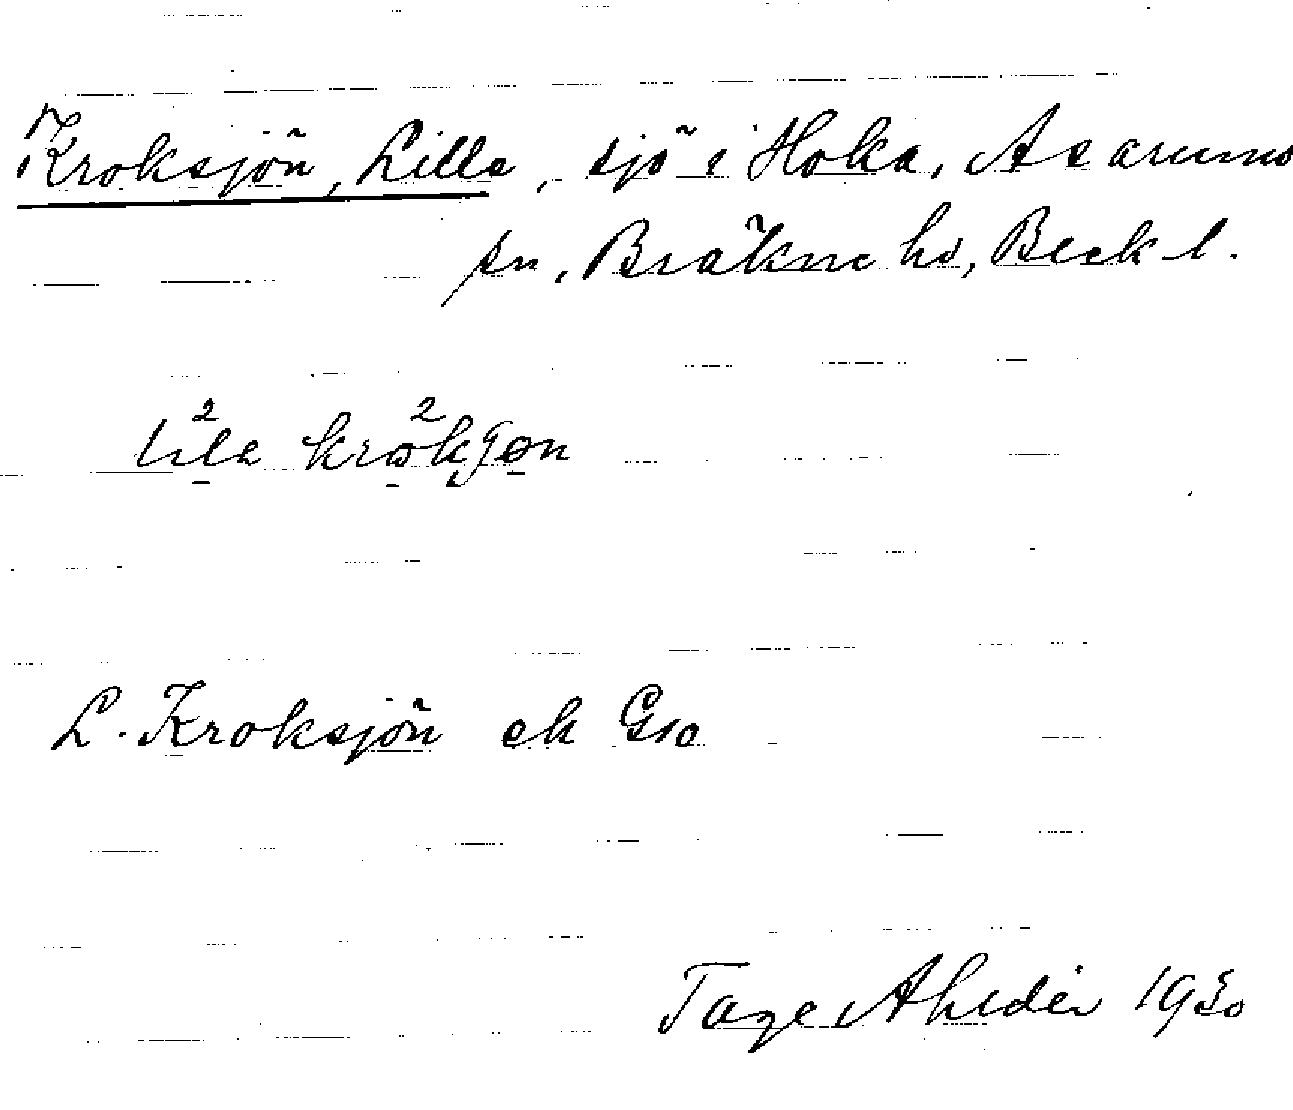 Kroksjön, Lilla, sjö i Hoka, Asarums
sn, Bräkne hd, Blek. l.
lila krokʂøn
L. Kroksjön ek G10
Tage Ahldén 1930